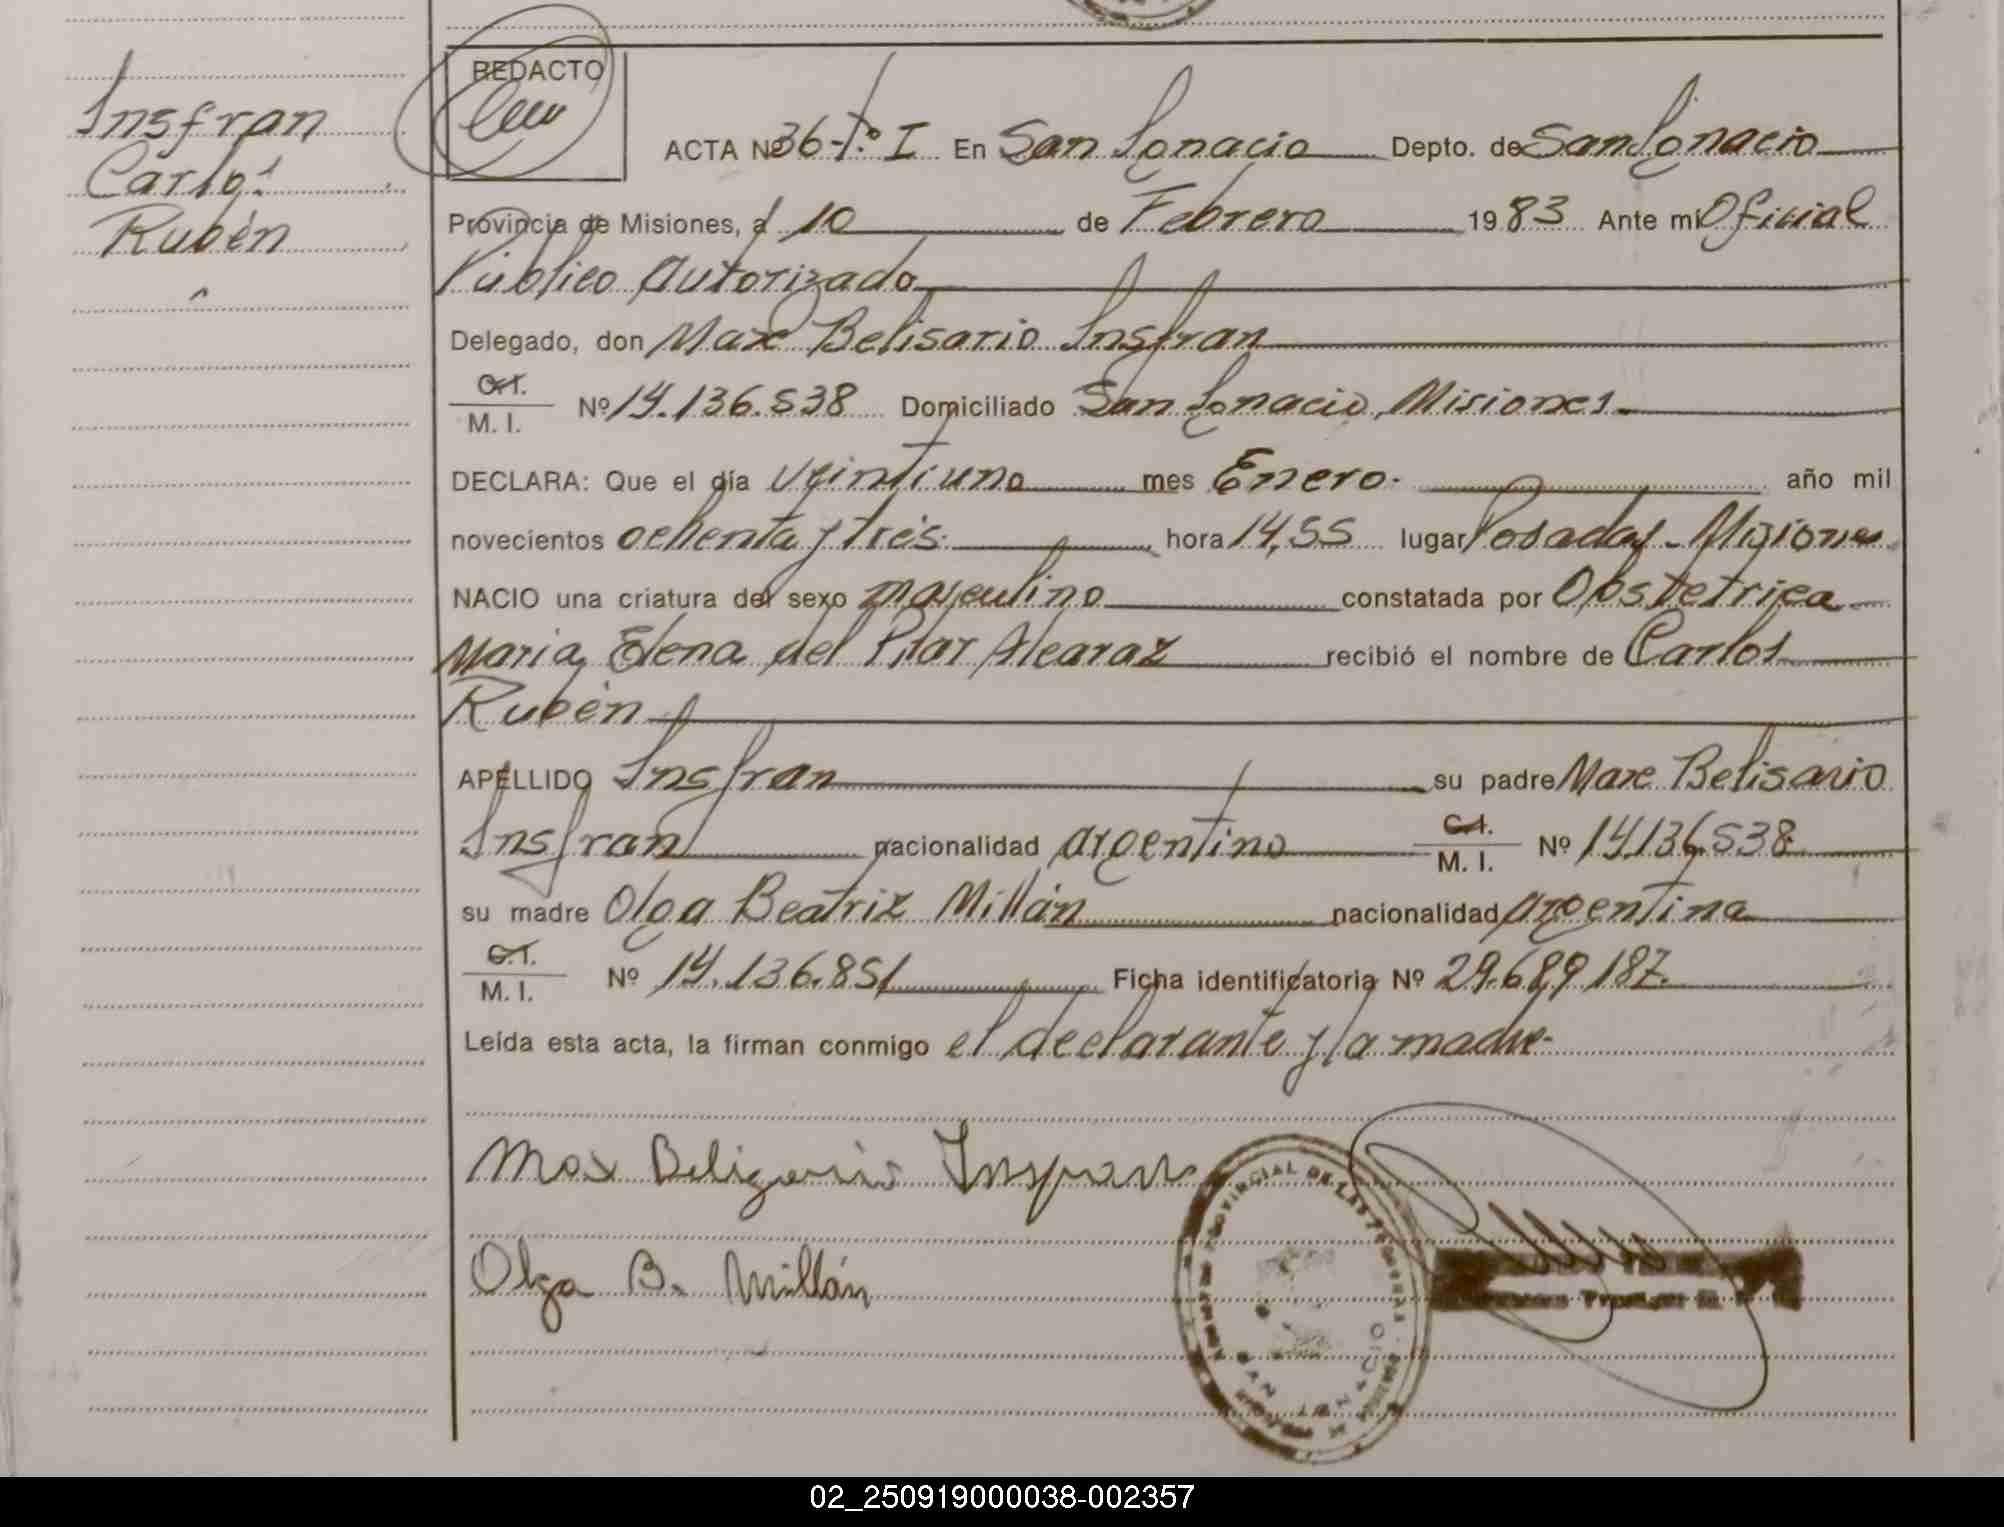 Insfran
Carlos
Rubén
REDACTO
ACTA Nº 36-Tº I En San Ignacio Depto. de San Ignacio
Provincia de Misiones, a 10 de Febrero 1983 Ante mi Oficial
Público Autorizado
Delegado, don Maxe Belisario Insfran
C.I.
M. I. Nº 14.136.538 Domiciliado San Ignacio, Misiones.
DECLARA: Que el día veintiuno mes Enero. año mil
novecientos ochenta y tres. hora 14,55 lugar Posadas - Misiones
NACIO una criatura del sexo masculino constatada por Obstetrica
Maria Elena del Pilar Alcaraz recibió el nombre de Carlos
Rubén
APELLIDO Insfran su padre Maxe Belisario
Insfran nacionalidad argentino C.I.
M. I. Nº 14.136.538
su madre Olga Beatriz Millán nacionalidad argentina
C.I.
M. I. Nº 14.136.851 Ficha identificatoria Nº 29.689.187.
Leída esta acta, la firman conmigo el declarante y la madre.
Max Belisario Insfran
Olga B. Millán
PROVINCIAL DE LAS PERSONAS
SAN IGNACIO
02_250919000038-002357